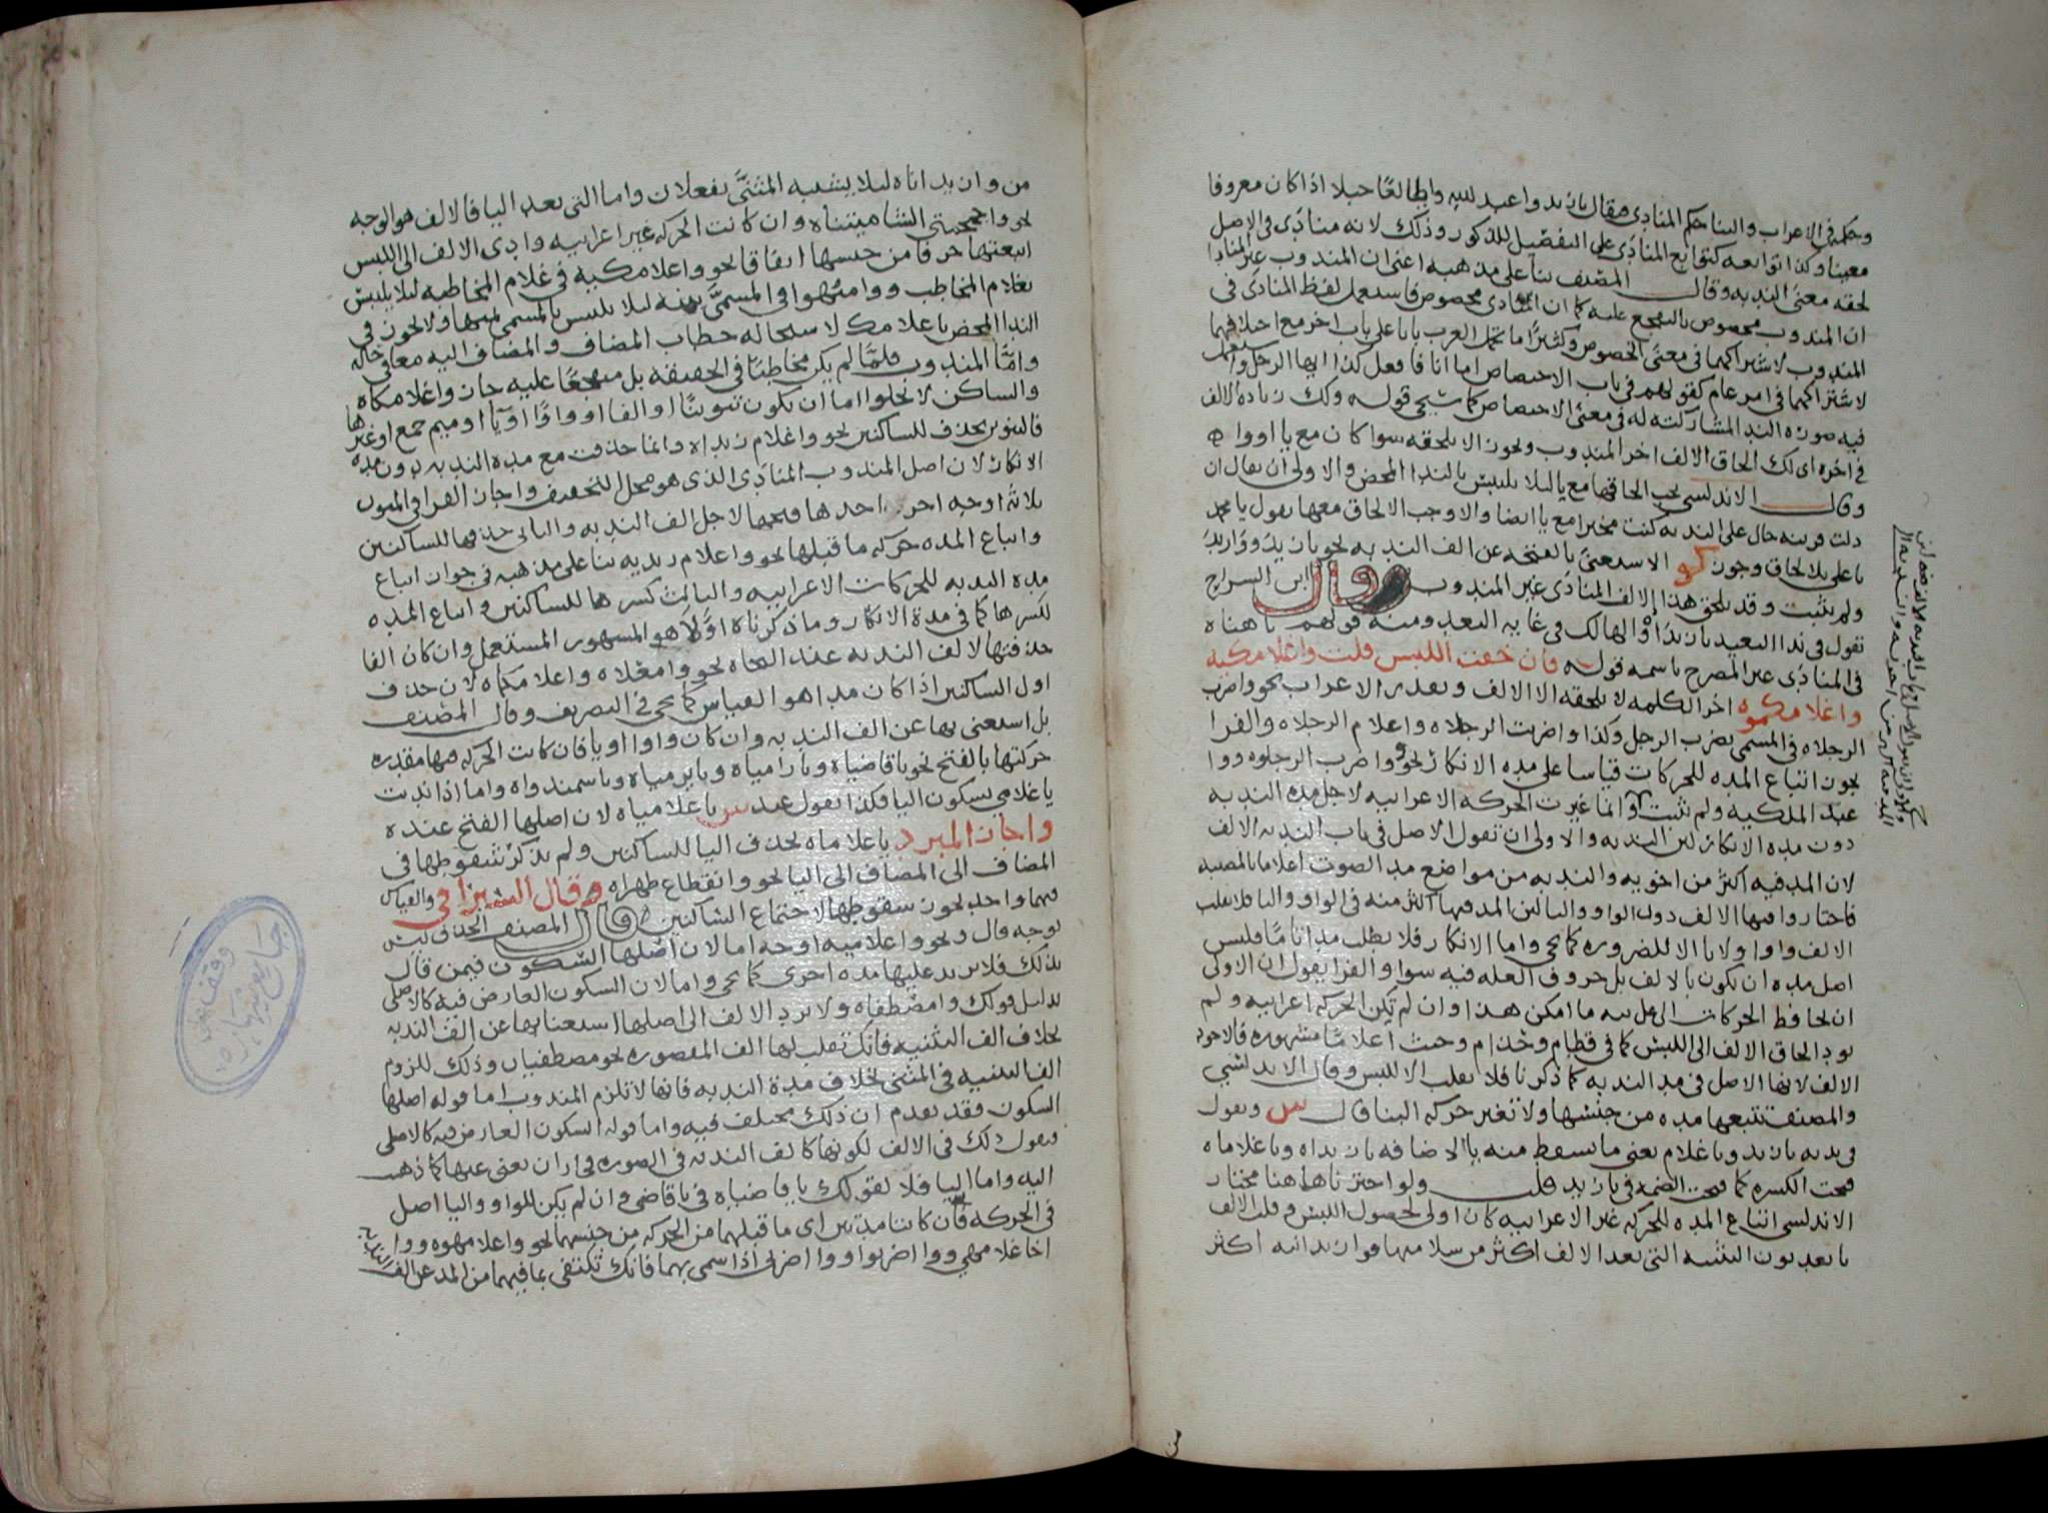 وحكمه في الاعراب والبنا حكم المنادى فيقال يا زيد وا عبد الله وا طالعًا جبلا اذا كان معروفا
معينا وكذا توابعه كتوابع المنادى على التفصيل المذكور وذلك لانه منادى في الاصل
لحقه معنى الندبه وقال المصنف بنا على مذهبه اعنى ان المندوب غير المنادى
ان المندوب مخصوص بالتفجع عليه كما ان المنادى مخصوص فاستعمل لفظ المنادى في
المندوب لاشتراكهما في معنى الخصوص وكثيرًا ما تحمل العرب بابا على باب اخر مع اختلافهما
لاشتراكهما في امر عام كقولهم في باب الاختصاص اما انا فافعل كذا ايها الرجل واستعمل
فيه صوره الندا لمشاركته له في معنى الاختصاص كما سيجى قوله ولك زياده الالف
في اخره اى لك الحاق الالف اخر المندوب ويجوز الا تلحقه سوا كان مع يا او وا
وقال الاندلسي يجب الحاقها مع يا ليلا يلتبس بالندا المحض والاولى ان يقال ان
دلت قرينه حال على الندبه كنت مخيرا مع يا ايضا والا وجب الالحاق معها تقول يا محمد
يا على بلا الحاق وجوز كو الاستغنى بالفتحه عن الف الندبه نحو يا زيدَ ووا زيدَ
ولم يثبت وقد يلحق هذا الالف المنادى غير المندوب قال ابن السراج
تقول في ندا البعيد يا زيدًا والهالك في غايه البعد ومنه قولهم يا هناه
في المنادى غير المصرح باسمه قوله فان خفت اللبس قلت واغلامكيه
واغلامكموه اخر الكلمه لا تلحقه الا الالف وتقدر الاعراب نحو واضرب
الرجلاه في المسمى بضرب الرجل وكذا واضربت الرجلاه واغلام الرجلاه والفرا
يجوز اتباع المده للحركات قياسا على مده الانكار نحو واضرب الرجلوه ووا
عبد الملكيه ولم يثبت وانما غيرت الحركه الاعرابيه لاجل مده الندبه
دون مده الانكار لان الندبه والاولى ان نقول الاصل في باب الندبه الالف
لان المد فيه اكثر من اخويه والندبه من مواضع مد الصوت اعلاما بالمصيبه
فاختاروا فيها الالف دون الواو واليا لان المد فيها اكثر منه في الواو واليا فلا تقلب
الالف واوا ولا يا الا للضروره كما يجى واما الانكار فلا يطلب مدا تامًا فليس
اصل مده ان يكون بالالف بل حروف العله فيه سوا والفرا يقول ان الاولى
ان يحافظ الحركات البنائيه ما امكن هذا وان لم تكن الحركه اعرابيه ولم
يود الحاق الالف الى اللبس كما في قطام وحذام وحيث اعلامًا مشهوره فالاجود
الالف لانها الاصل في مد الندبه كما ذكرنا فلا تقلب الا للبس وقال الاندلسي
والمصنف تتبعها مده من جنسها ولا تغير حركه البنا قال س وتقول
في ندبه يا زيد ويا غلام يعنى ما تسقط منه يا الاضافه يا زيداه ويا غلاماه
فتحت الكسره كما فتحت الضمه في يا زيد قلت ولو اخترنا هاهنا مختار
الاندلسي اتباع المده للحركه غير الاعرابيه كان اولى لحصول اللبس وقلب الالف
يا بعد نون التثنيه التى بعد الالف اكثر من سلامتها فوا زيدانيه اكثر
من وا زيداناه ليلا يشبه المثنى بفعلان واما التى بعد اليا فالالف هو الوجه
نحو واجمجمتى الشاميتيناه وان كانت الحركه غير اعرابيه وادى الالف الى اللبس
اتبعتها حرفا من جنسها اتفاقا نحو واغلامكيه في غلام المخاطبه ليلا يلتبس
بغلام المخاطب ووامنهوا في المسمى بمنه ليلا يلتبس بالمسمى بمنها ولا يجوز في
الندا المحض يا غلامك لاستحاله خطاب المضاف والمضاف اليه معا في حاله
وامّا المندوب فلمّا لم يكن مخاطبًا في الحقيقه بل متفجعًا عليه جاز واغلامكاه
والساكن لا يخلوا اما ان يكون تنوينًا او الفا او واوًا او يًا او ميم جمع او غيرها
فالتنوين يحذف للساكنين نحو واغلام زيداه وانما حذفت مع مده الندبه دون مده
الانكار لان اصل المندوب المنادى الذى هو محل التخفيف واجاز الفرا في المنون
ثلاثه اوجه اخر احدها فتحها لاجل الف الندبه والثانى حذفها للساكنين
واتباع المده حركه ما قبلها نحو واغلام زيديه بنا على مذهبه في جواز اتباع
مده الندبه للحركات الاعرابيه والثالث كسرها للساكنين واتباع المده
لكسرها كما في مدة الانكار وما ذكرناه اوّلًا هو المشهور المستعمل وان كان الفا
حذفتها لالف الندبه عند النحاه نحو وامعلاه واغلامكماه لان حذف
اول الساكنين اذا كان مدا هو القياس كما يجى في التصريف وقال المصنف
بل استغنى بها عن الف الندبه وان كان واوا او يا فان كانت الحركه فيها مقدره
حركتها بالفتح نحو يا قاضياه ويا رامياه ويا يرمياه ويا سمندواه واما اذا ندبت
يا غلامي بسكون اليا فكذا تقول عند س يا غلامياه لان اصلها الفتح عنده
واجاز المبرد يا غلاماه بحذف اليا للساكنين ولم يذكر سقوطها في
المضاف الى المضاف الى اليا نحو وانقطاع ظهراه وقال السيرافي والقياس
فيهما واحد يجوز سقوطها لاجتماع الساكنين قال المصنف الحذف ليس
بوجه قال ونحو واغلاميه اوجه اما لان اصلها السكون فيمن قال
بذلك فلا يزيد عليها مده اخرى كما يجى واما لان السكون العارض فيه كالاصلى
بدليل قولك وامصطفاه ولا ترد الالف الى اصلها استغنا بها عن الف الندبه
بخلاف الف التثنيه فانك تقلب لها الف المقصوره نحو مصطفيان وذلك للزوم
الف التثنيه في المثنى بخلاف مدة الندبه فانها لا تلزم المندوب اما قوله اصلها
السكون فقد تقدم ان ذلك مختلف فيه واما قوله السكون العارض فيه كالاصلى
فنقول ذلك في الالف لكونها كالف الندبه في الصوره فجاز ان يغنى عنها كما ذهب
اليه واما اليا فلا لقولك يا قاضياه في يا قاضى وان لم يكن للواو واليا اصل
في الحركه فان كانتا مدتين اى ما قبلهما من الحركه من جنسهما نحو واغلامهوه ووا
اخا غلامهي ووا اضربوا ووا اضربى اذا سمى بهما فانك تكتفى بما فيهما من المد عن الف الندبه
وقف
جامع شهاره